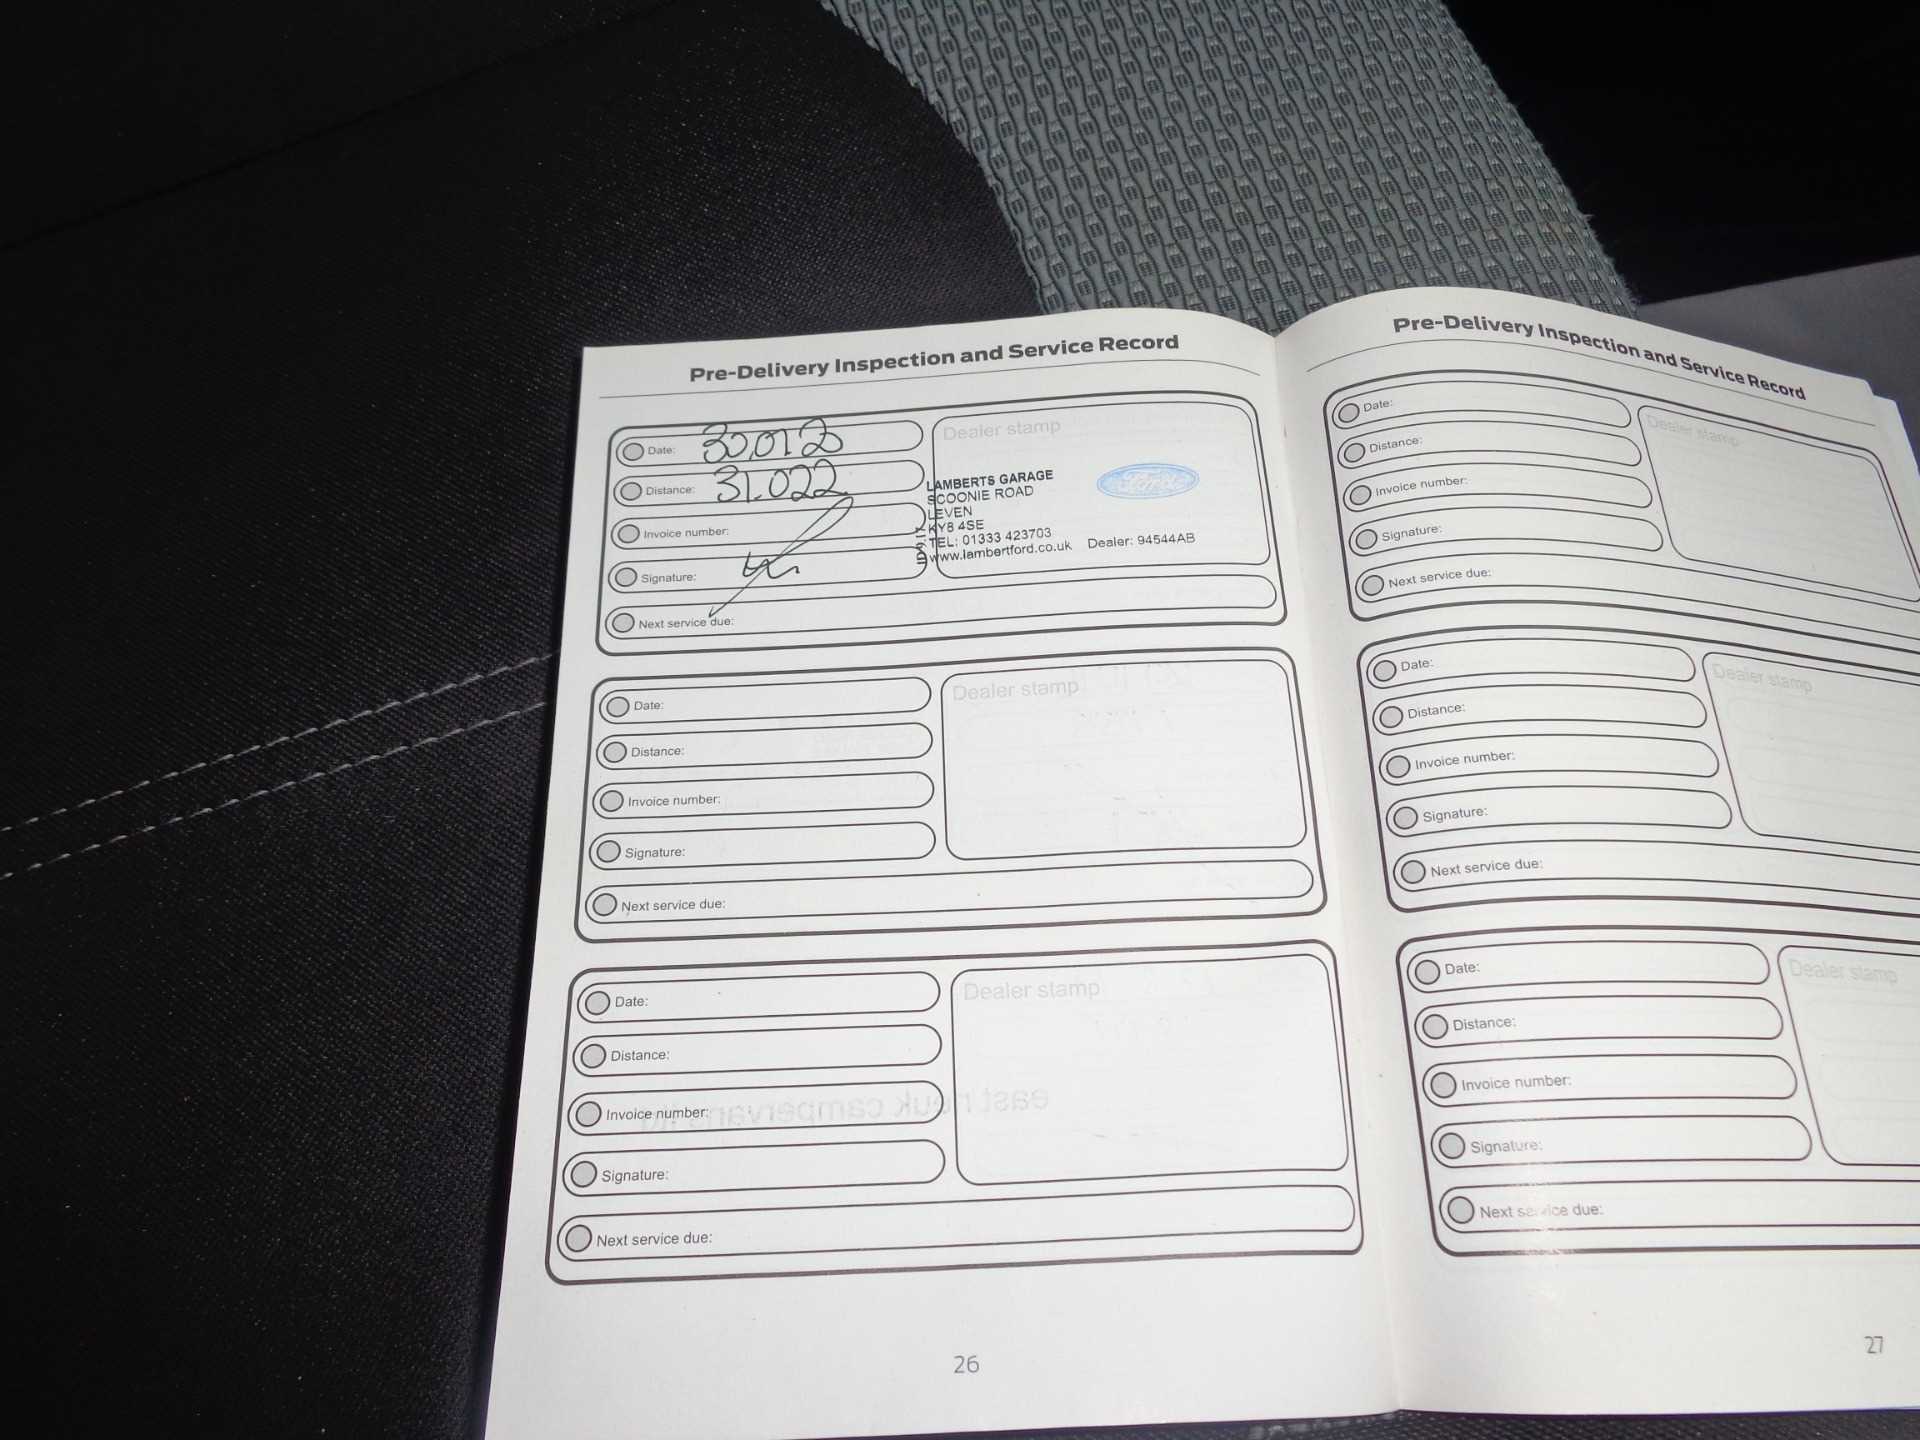 Pre-Delivery Inspection and Service Record
Date:
Distance: 31.022
Invoice number:
Signature:
Next service due:
Dealer stamp
LAMBERTS GARAGE
SCOONIE ROAD
LEVEN
KY8 4SE
TEL: 01333 423703
www.lambertford.co.uk Dealer: 94544AB
Ford
Date:
Distance:
Invoice number:
Signature:
Next service due:
Dealer stamp
Date:
Distance:
Invoice number:
Signature:
Next service due:
Dealer stamp
east neuk campervans ltd
26
Pre-Delivery Inspection and Service Record
Date:
Distance:
Invoice number:
Signature:
Next service due:
Dealer stamp
Date:
Distance:
Invoice number:
Signature:
Next service due:
Dealer stamp
Date:
Distance:
Invoice number:
Signature:
Next service due:
Dealer stamp
27